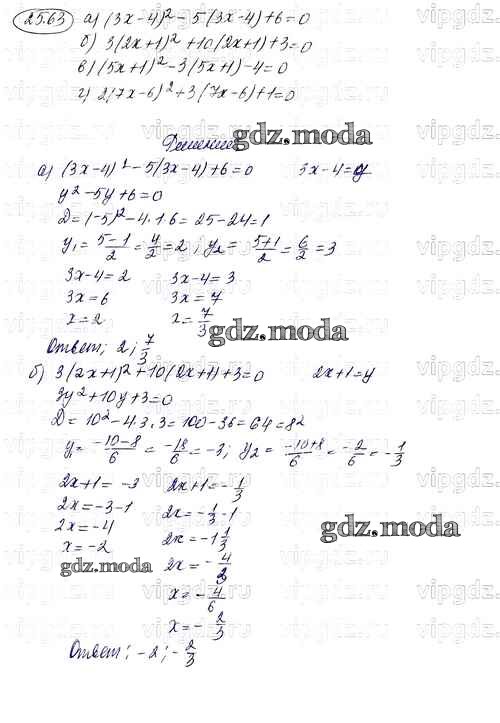 25.63 а) (3x-4)² - 5(3x-4)+6=0
б) 3(2x+1)² +10(2x+1)+3=0
в) (5x+1)² -3(5x+1)-4=0
г) 2(7x-6)²+3(7x-6)+1=0
Решение
gdz.moda
а) (3x-4)² - 5(3x-4)+6=0 3x-4=y
y² -5y+6=0
D=(-5)² -4·1·6=25-24=1
y₁=(5-1)/2=4/2=2; y₂=(5+1)/2=6/2=3
3x-4=2 3x-4=3
3x=6 3x=7
x=2 x=7/3
gdz.moda
Ответ: 2; 7/3
б) 3(2x+1)² +10(2x+1)+3=0 2x+1=y
3y²+10y+3=0
D=10²-4·3·3=100-36=64=8²
y₁=(-10-8)/6=-18/6=-3; y₂=(-10+8)/6=-2/6=-1/3
2x+1=-3 2x+1=-1/3
2x=-3-1 2x=-1/3-1
2x=-4 2x=-1 1/3
x=-2 2x=-4/3
gdz.moda
gdz.moda
x=-4/6
x=-2/3
Ответ: -2; -2/3
vipgdz.com